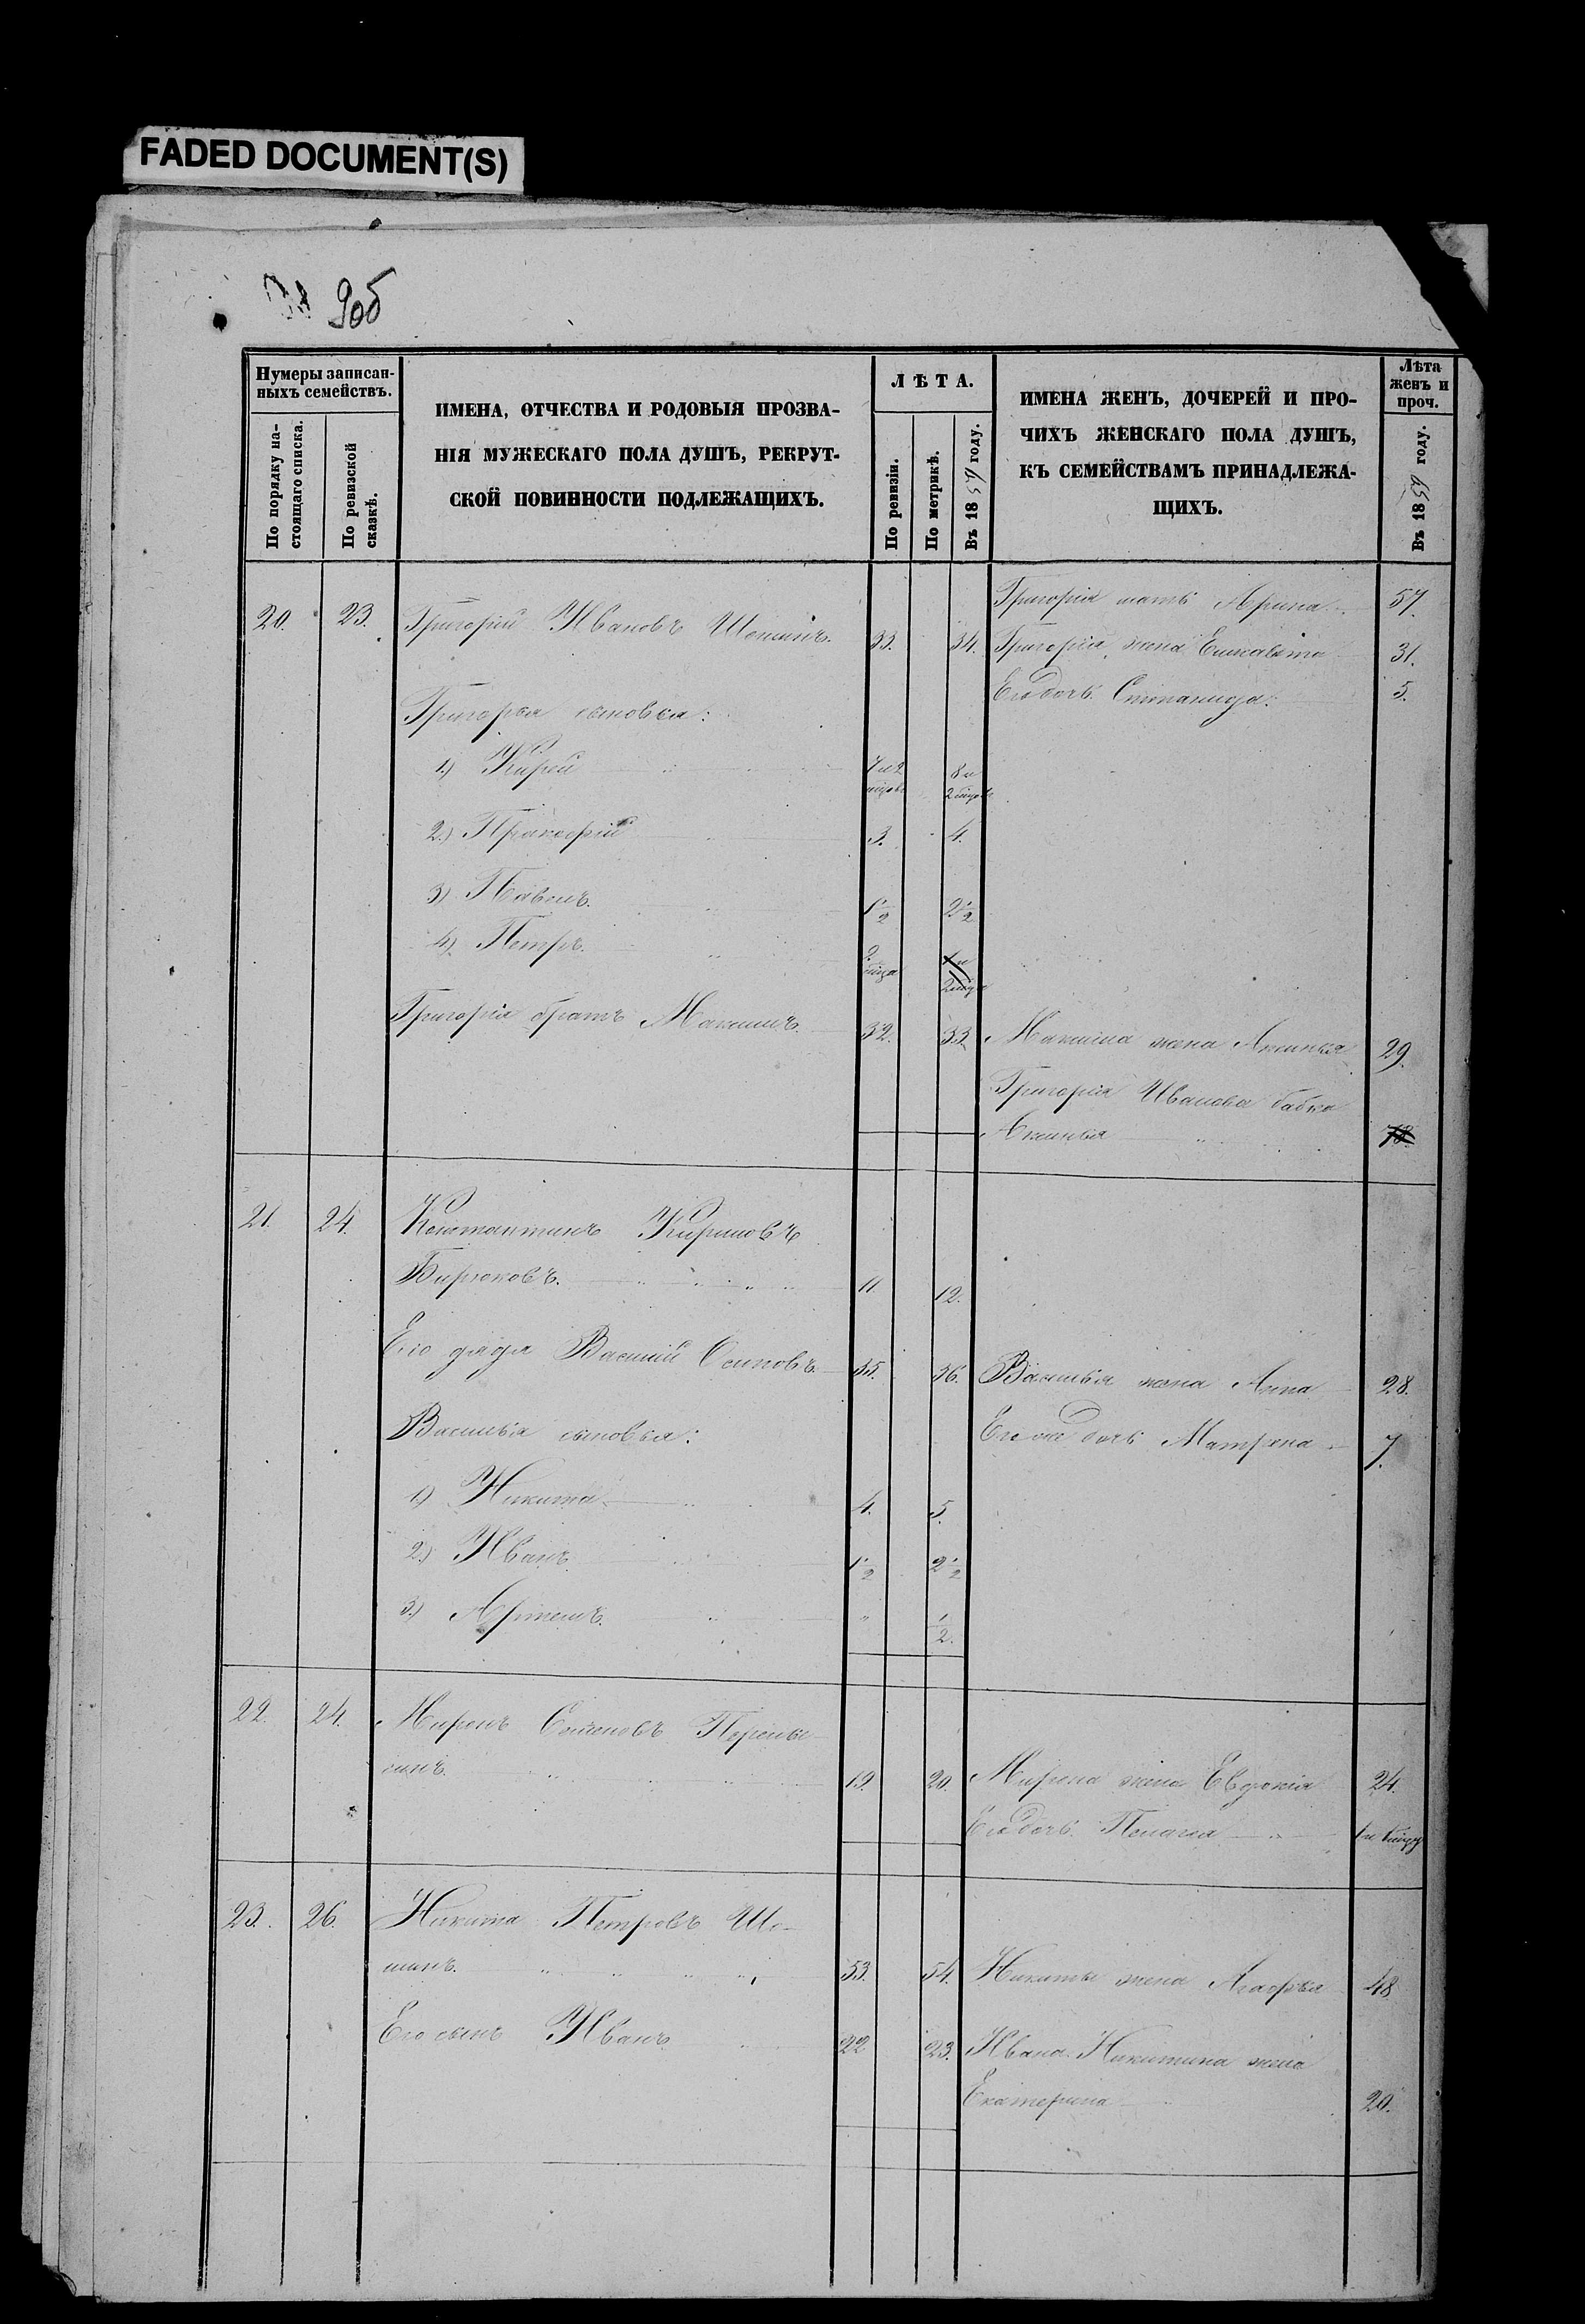 FADED DOCUMENT(S)
9об
Нумеры записан-
ныхъ семействъ.
По порядку на-
стоящаго списка.
По ревизской
сказкѣ.
ИМЕНА, ОТЧЕСТВА И РОДОВЫЯ ПРОЗВА-
НІЯ МУЖЕСКАГО ПОЛА ДУШЪ, РЕКРУТ-
СКОЙ ПОВИННОСТИ ПОДЛЕЖАЩИХЪ.
ЛѢТА.
По ревизіи.
По метрикѣ.
Въ 1859 году.
ИМЕНА ЖЕНЪ, ДОЧЕРЕЙ И ПРО-
ЧИХЪ ЖЕНСКАГО ПОЛА ДУШЪ,
КЪ СЕМЕЙСТВАМЪ ПРИНАДЛЕЖА-
ЩИХЪ.
Лѣта
женъ и
проч.
Въ 1859 году.
Григорія мать Арина 57.
20. 23. Григорій Ивановъ 33. 34. Григорія жена Елисавѣта 31.
Его дочь Степанида: 5.
Григорья сыновья:
1.) Кирей 7 и 2 8 и
2 мѣсяц
2.) Пракофій 3. 4.
3) Павелъ. 1 1/2 2 1/2
4) Петръ. 2
Григорія братъ Максимъ. 32. 33. Максима жена Аксинья 29.
Григорія Иванова бабка
Аксинья 78.
21. 24. Константинъ Кириловъ
Бирюковъ. 11 12.
Его дядя Василій Осиповъ 35. 36. Василья жена Анна 28.
Василья сыновья: Его же дочь Матрена 7.
1) Никита 4. 5.
2) Иванъ 1 1/2 2 1/2
3.) Артемъ. " 1/2.
22. 24. Миронъ Семеновъ
19. 20. Мирона жена Евдокія 24.
Его дочь Пелагея
23. 26. Никита Петровъ Шо-
шинъ. 53. 54. Никиты жена Агафья 48
Его сынъ Иванъ 22 23. Ивана Никитина жена
Екатерина 20.